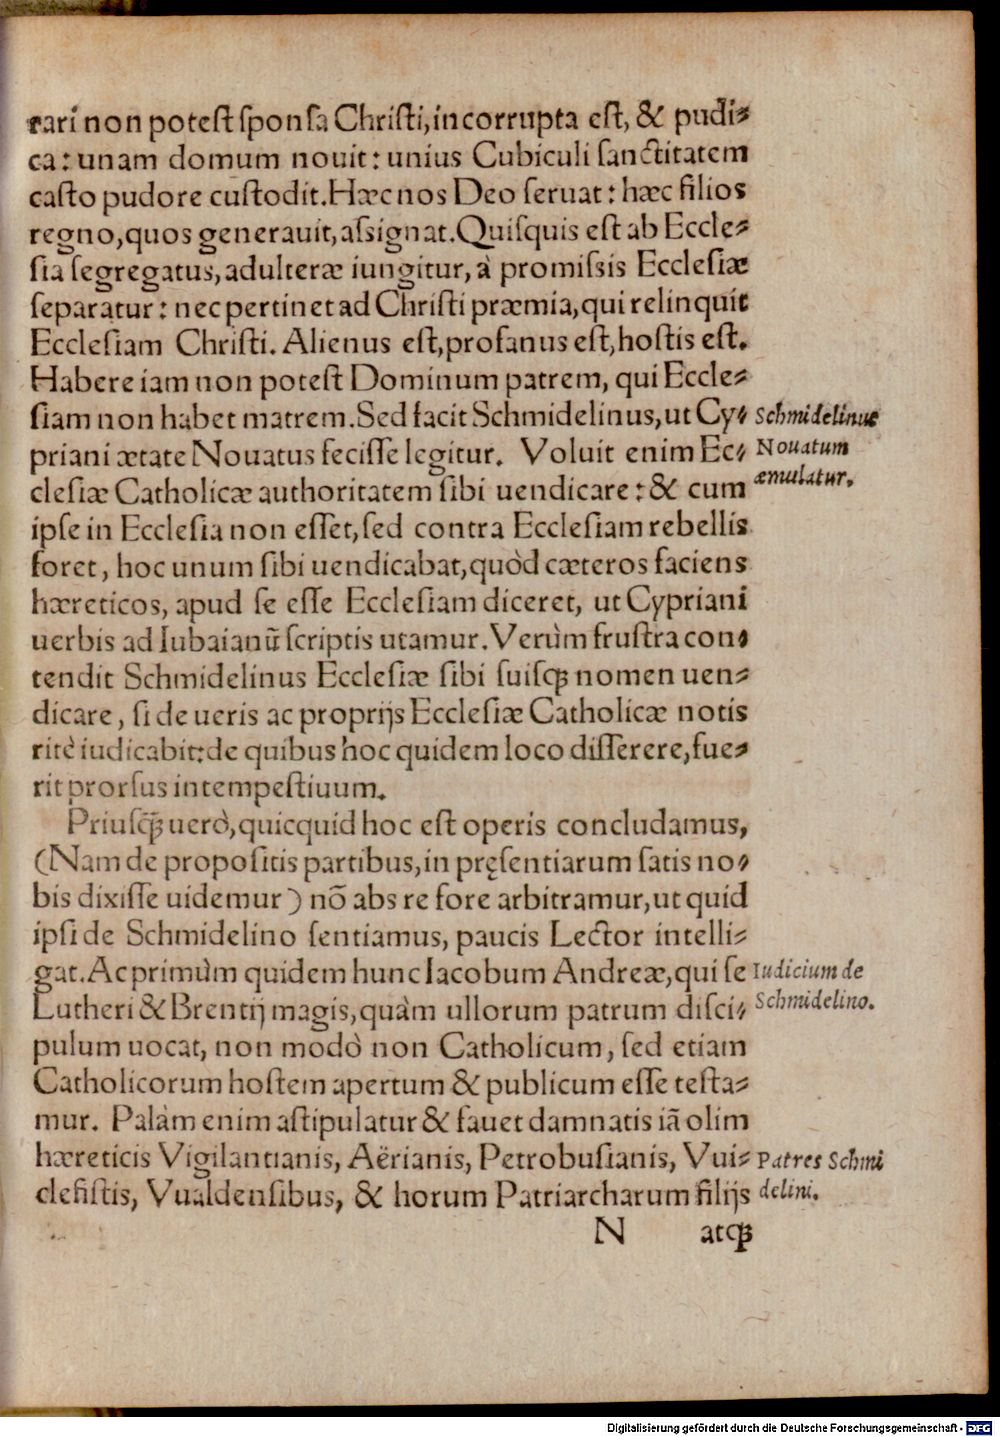 rari non potest sponsa Christi, incorrupta est, & pudi⸗
ca: unam domum nouit: unius Cubiculi sanctitatem
casto pudore custodit. Hæc nos Deo seruat: hæc filios
regno, quos generauit, assignat. Quisquis est ab Eccle⸗
sia segregatus, adulteræ iungitur, à promissis Ecclesiæ
separatur: nec pertinet ad Christi præmia, qui relinquit
Ecclesiam Christi. Alienus est, profanus est, hostis est.
Habere iam non potest Dominum patrem, qui Eccle⸗
siam non habet matrem. Sed facit Schmidelinus, ut Cy⸗
priani ætate Nouatus fecisse legitur. Voluit enim Ec⸗
clesiæ Catholicæ authoritatem sibi uendicare: & cum
ipse in Ecclesia non esset, sed contra Ecclesiam rebellis
foret, hoc unum sibi uendicabat, quòd cæteros faciens
hæreticos, apud se esse Ecclesiam diceret, ut Cypriani
uerbis ad Iubaianū scriptis utamur. Verùm frustra con⸗
tendit Schmidelinus Ecclesiæ sibi suisq́; nomen uen⸗
dicare, si de ueris ac proprijs Ecclesiæ Catholicæ notis
ritè iudicabit: de quibus hoc quidem loco disserere, fue⸗
rit prorsus intempestiuum.
Priusq̃; uerò, quicquid hoc est operis concludamus,
(Nam de propositis partibus, in pręsentiarum satis no⸗
bis dixisse uidemur) nō abs re fore arbitramur, ut quid
ipsi de Schmidelino sentiamus, paucis Lector intelli⸗
gat. Ac primùm quidem hunc Iacobum Andreæ, qui se
Lutheri & Brentij magis, quàm ullorum patrum disci⸗
pulum uocat, non modò non Catholicum, sed etiam
Catholicorum hostem apertum & publicum esse testa⸗
mur. Palàm enim astipulatur & fauet damnatis iā olim
hæreticis Vigilantianis, Aërianis, Petrobusianis, Vui⸗
clefistis, Vualdensibus, & horum Patriarcharum filijs
N atq;
Schmidelinus
Nouatum
æmulatur.
Iudicium de
Schmidelino.
Patres Schmi
delini.
Digitalisierung gefördert durch die Deutsche Forschungsgemeinschaft - DFG